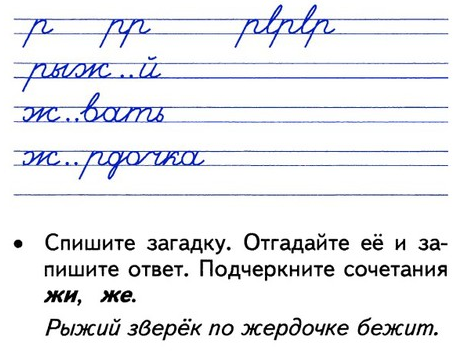 р рр рврвр
рыж..й
ж..вать
ж..рдочка
• Спишите загадку. Отгадайте её и за-
пишите ответ. Подчеркните сочетания
жи, же.
Рыжий зверёк по жердочке бежит.